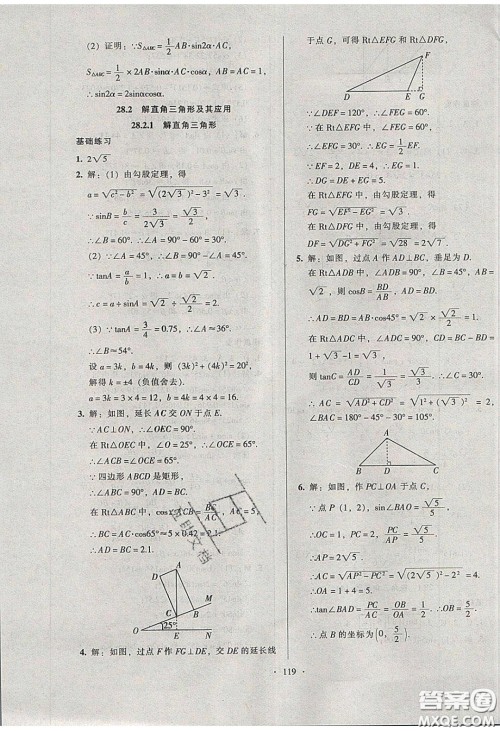 (2) 证明：∵S△ABC=1/2 AB·sin2α·AC，
S△ABC=1/2×2AB·sinα·AC·cosα，AB=AC=1，
∴sin2α=2sinαcosα.
28.2 解直角三角形及其应用
28.2.1 解直角三角形
基础练习
1. 2√5
2. 解：(1) 由勾股定理，得
a=√(c²-b²)=√((2√3)²-3²)=√3.
∵sinB=b/c=3/(2√3)=√3/2，
∴∠B=60°. ∴∠A=90°-60°=30°.
(2) ∵∠A=45°，∴∠B=90°-∠A=45°.
∵tanA=a/b=1，∴a=b=√2.
∴c=a÷sinA=√2÷√2/2=2.
(3) ∵tanA=3/4=0.75，∴∠A≈36°.
∴∠B≈54°.
设a=3k，b=4k，则 (3k)²+(4k)²=20².
解得k=±4 (负值舍去).
∴a=3k=3×4=12，b=4k=4×4=16.
3. 解：如图，延长AC交ON于点E.
∵AC⊥ON，∴∠OEC=90°.
在Rt△OEC中，∠O=25°，∴∠OCE=65°.
∴∠ACB=∠OCE=65°.
∵四边形ABCD是矩形，
∴∠ABC=90°，AD=BC.
在Rt△ABC中，cos∠ACB=BC/AC，AC=5，
∴BC=AC·cos65°≈5×0.42=2.1.
∴AD=BC=2.1.
D
A
C
B
M
O
25°
E
N
4. 解：如图，过点F作FG⊥DE，交DE的延长线
于点G，可得Rt△EFG和Rt△DFG，
F
D
E
G
∵∠DEF=120°，∴∠FEG=60°.
在Rt△EFG中，∵∠FEG=60°，
∴∠EFG=30°. ∴EG=1/2EF.
∵EF=2，DE=4，∴EG=1.
∴DG=DE+EG=5.
在Rt△EFG中，由勾股定理，得
FG=√(EF²-EG²)=√3.
在Rt△DFG中，由勾股定理，得
DF=√(DG²+FG²)=√28=2√7.
5. 解：如图，过点A作AD⊥BC，垂足为D.
在Rt△ADB中，∵∠ADB=90°，∠B=45°，AB=
√2，则cosB=BD/AB，
∴AD=BD=AB·cosB=√2×√2/2=1.
在Rt△ADC中，∵∠ADC=90°，CD=BC-BD
=1+√3-1=√3，
则tanC=AD/CD=1/√3=√3/3，∴∠C=30°.
∴AC=√(AD²+CD²)=√(1²+(√3)²)=2.
A
B
D
C
6. 解：如图，作PC⊥OA于点C.
∵点P (1，2)，cos∠APC=√5/5，
∴OC=1，PC=2，PC/AP=√5/5.
∴AP=2√5.
∴AC=√(AP²-PC²)=√((2√5)²-2²)=4.
∴OA=1+4=5.
∴tan∠BAO=PC/AC=OB/OA=1/2. ∴OB=5/2.
∴点B的坐标为(0，5/2).
· 119 ·
作业精灵
答案圈
MXQE.COM